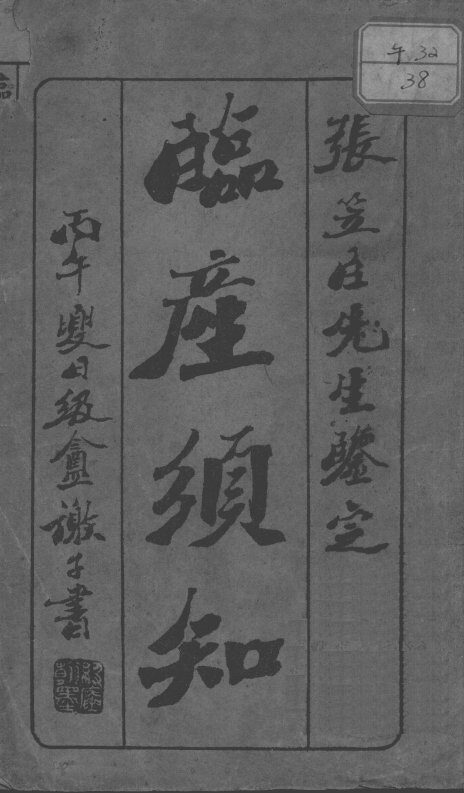 張笠臣先生鑒定
臨產須知
丙午夏日級盦謝
書
午 32
38
臨